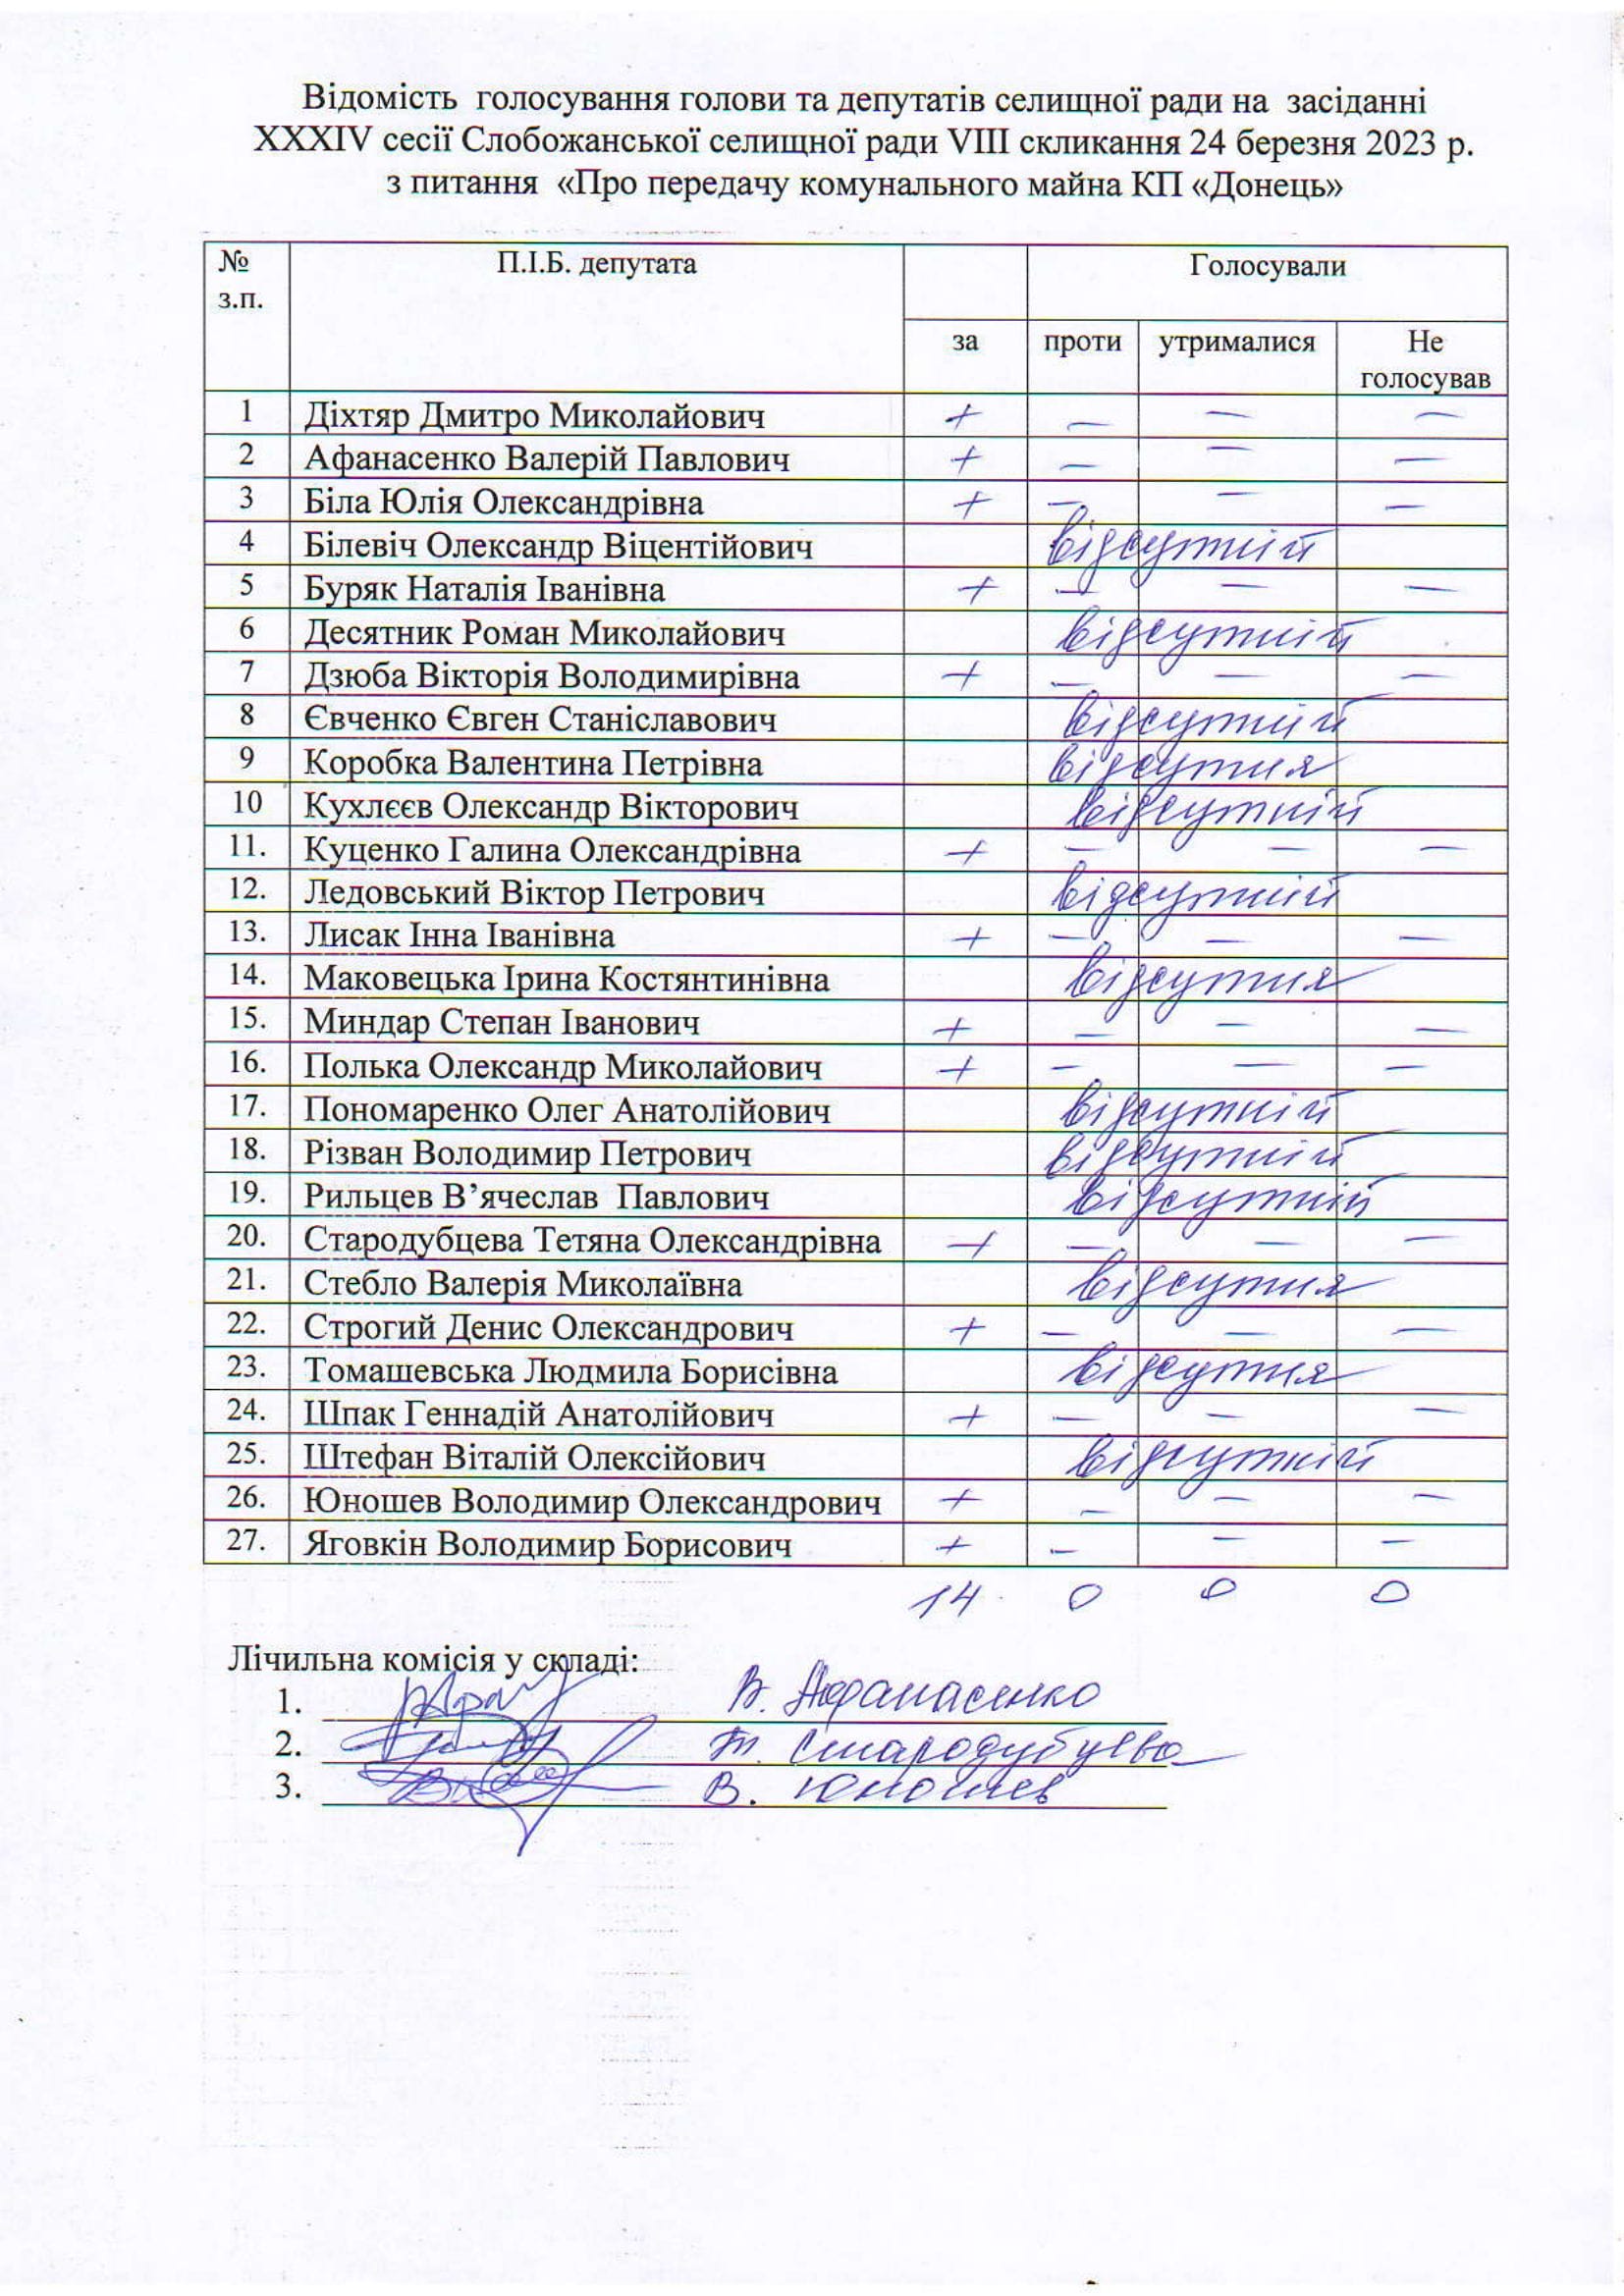 Відомість голосування голови та депутатів селищної ради на засіданні
XXXIV сесії Слобожанської селищної ради VIII скликання 24 березня 2023 р.
з питання «Про передачу комунального майна КП «Донець»
№ з.п. П.І.Б. депутата Голосували
за проти утрималися Не голосував
1 Діхтяр Дмитро Миколайович + — — —
2 Афанасенко Валерій Павлович + — — —
3 Біла Юлія Олександрівна + — — —
4 Білевіч Олександр Віцентійович відсутній
5 Буряк Наталія Іванівна + — — —
6 Десятник Роман Миколайович відсутній
7 Дзюба Вікторія Володимирівна + — — —
8 Євченко Євген Станіславович відсутній
9 Коробка Валентина Петрівна відсутня
10 Кухлєєв Олександр Вікторович відсутній
11. Куценко Галина Олександрівна + — — —
12. Ледовський Віктор Петрович відсутній
13. Лисак Інна Іванівна + — — —
14. Маковецька Ірина Костянтинівна відсутня
15. Миндар Степан Іванович + — — —
16. Полька Олександр Миколайович + — — —
17. Пономаренко Олег Анатолійович відсутній
18. Різван Володимир Петрович відсутній
19. Рильцев В’ячеслав Павлович відсутній
20. Стародубцева Тетяна Олександрівна + — — —
21. Стебло Валерія Миколаївна відсутня
22. Строгий Денис Олександрович + — — —
23. Томашевська Людмила Борисівна відсутня
24. Шпак Геннадій Анатолійович + — — —
25. Штефан Віталій Олексійович відсутній
26. Юношев Володимир Олександрович + — — —
27. Яговкін Володимир Борисович + — — —
14 0 0 0
Лічильна комісія у складі:
1. В. Афанасенко
2. Т. Стародубцева
3. В. Юношев